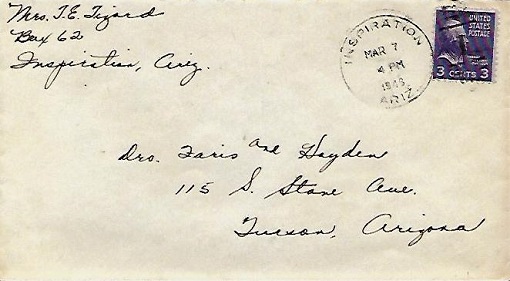 Mrs. T. E. Tizard
Box 62
Inspiration, Ariz.
INSPIRATION
MAR 7
4 PM
ARIZ.
UNITED
STATES
POSTAGE
3 CENTS 3
Drs. Faris and Hayden
115 S. Stone Ave.
Tucson, Arizona